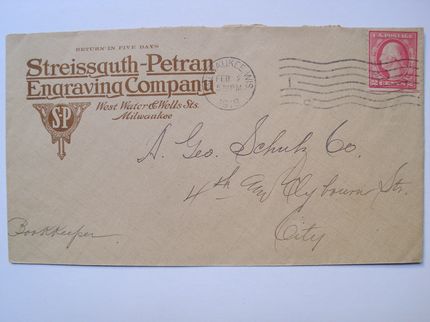 RETURN IN FIVE DAYS
Streissguth-Petran
Engraving Company
West Water & Wells Sts.
Milwaukee
S-P
MILWAUKEE, WIS.
FEB
5 PM
U.S. POSTAGE
2 CENTS 2
A. Geo. Schulz Co.
4th and Clybourn Str.
City
Bookkeeper